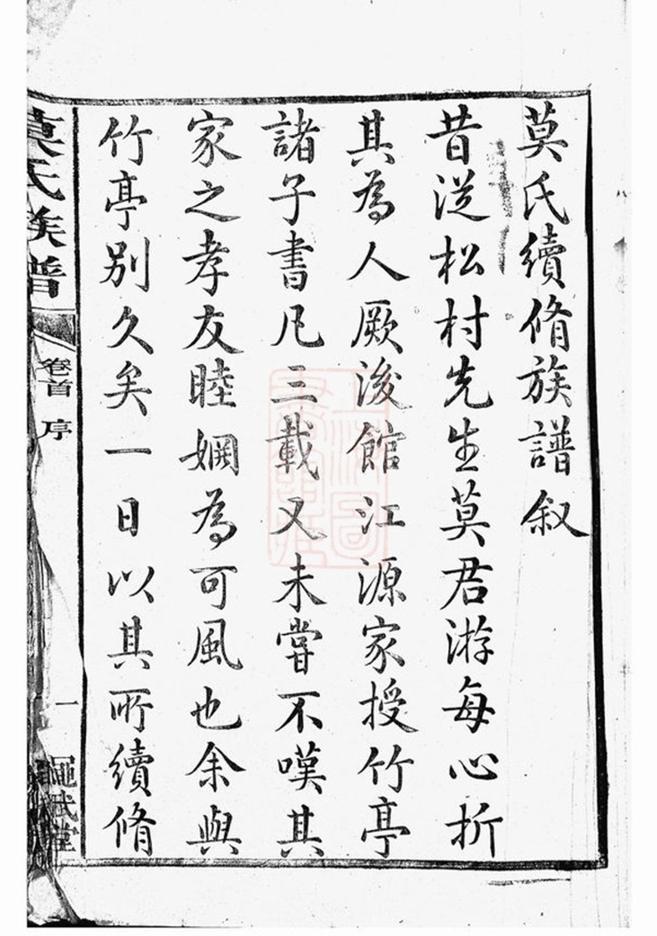 莫氏續脩族譜叙
昔從松村先生莫君游每心折
其為人厥後館江源家授竹亭
諸子書凡三載又未甞不嘆其
家之孝友睦婣為可風也余與
竹亭別久矣一日以其所續脩
莫氏族譜
卷首 序
一
繩武堂